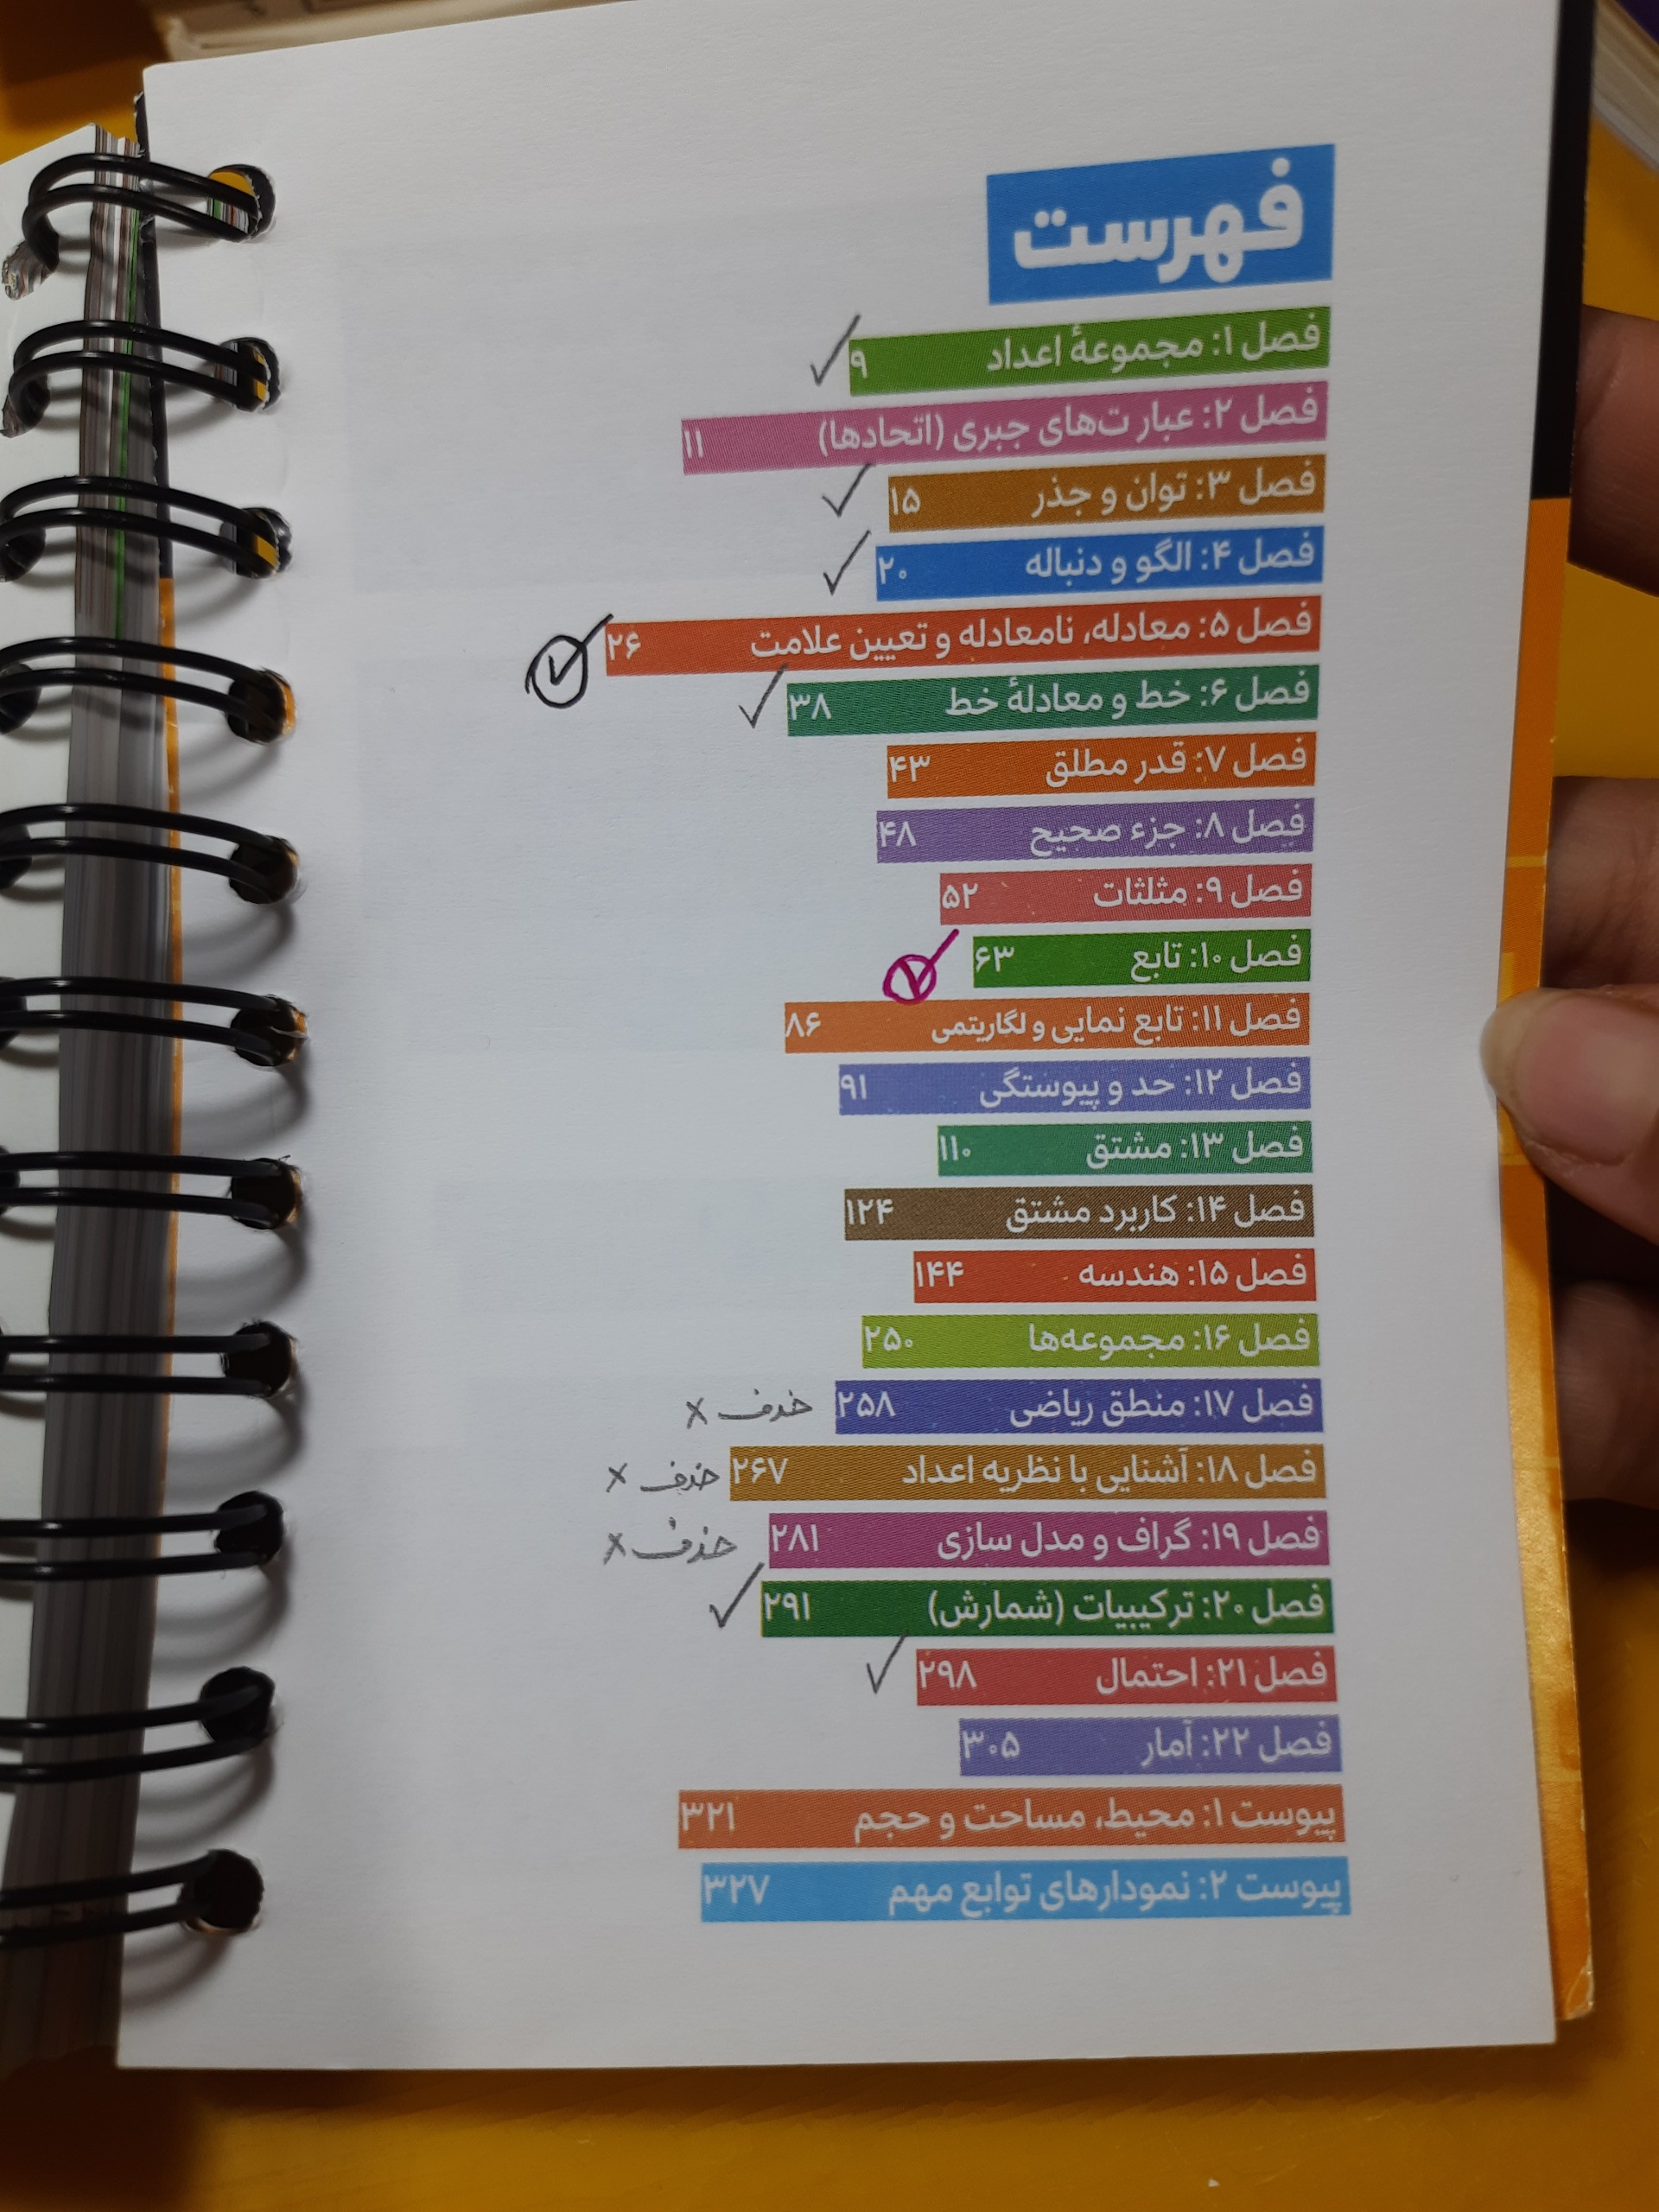 فهرست
فصل ۱: مجموعهٔ اعداد ۹ ✓
فصل ۲: عبارت‌های جبری (اتحادها) ۱۱
فصل ۳: توان و جذر ۱۵ ✓
فصل ۴: الگو و دنباله ۲۰ ✓
فصل ۵: معادله، نامعادله و تعیین علامت ۲۶ ✓
فصل ۶: خط و معادلهٔ خط ۳۸ ✓
فصل ۷: قدر مطلق ۴۳
فصل ۸: جزء صحیح ۴۸
فصل ۹: مثلثات ۵۲
فصل ۱۰: تابع ۶۳ ✓
فصل ۱۱: تابع نمایی و لگاریتمی ۸۶
فصل ۱۲: حد و پیوستگی ۹۱
فصل ۱۳: مشتق ۱۱۰
فصل ۱۴: کاربرد مشتق ۱۲۴
فصل ۱۵: هندسه ۱۴۴
فصل ۱۶: مجموعه‌ها ۲۵۰
فصل ۱۷: منطق ریاضی ۲۵۸ حذف ×
فصل ۱۸: آشنایی با نظریه اعداد ۲۶۷ حذف ×
فصل ۱۹: گراف و مدل سازی ۲۸۱ حذف ×
فصل ۲۰: ترکیبیات (شمارش) ۲۹۱ ✓
فصل ۲۱: احتمال ۲۹۸ ✓
فصل ۲۲: آمار ۳۰۵
پیوست ۱: محیط، مساحت و حجم ۳۲۱
پیوست ۲: نمودارهای توابع مهم ۳۲۷